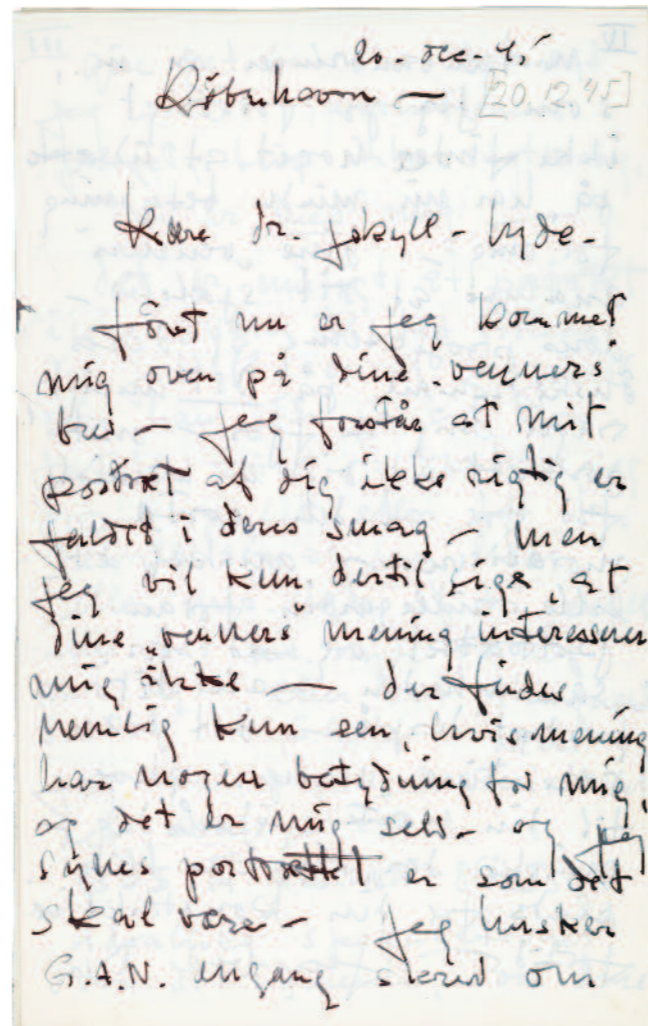 20. dec. 45
København — [20.12.45]
Kære dr. Jekyll - Hyde -
først nu er jeg kommet
mig oven på dine "venners"
brev - jeg forstår at mit
portræt af dig ikke rigtig er
faldet i deres smag - men
jeg vil kun dertil sige, at
dine "venners" mening interesserer
mig ikke — der findes
nemlig kun een, hvis mening
har nogen betydning for mig,
og det er mig selv - og jeg
synes portrættet er som det
skal være - jeg husker
G.A.N. engang skrev om